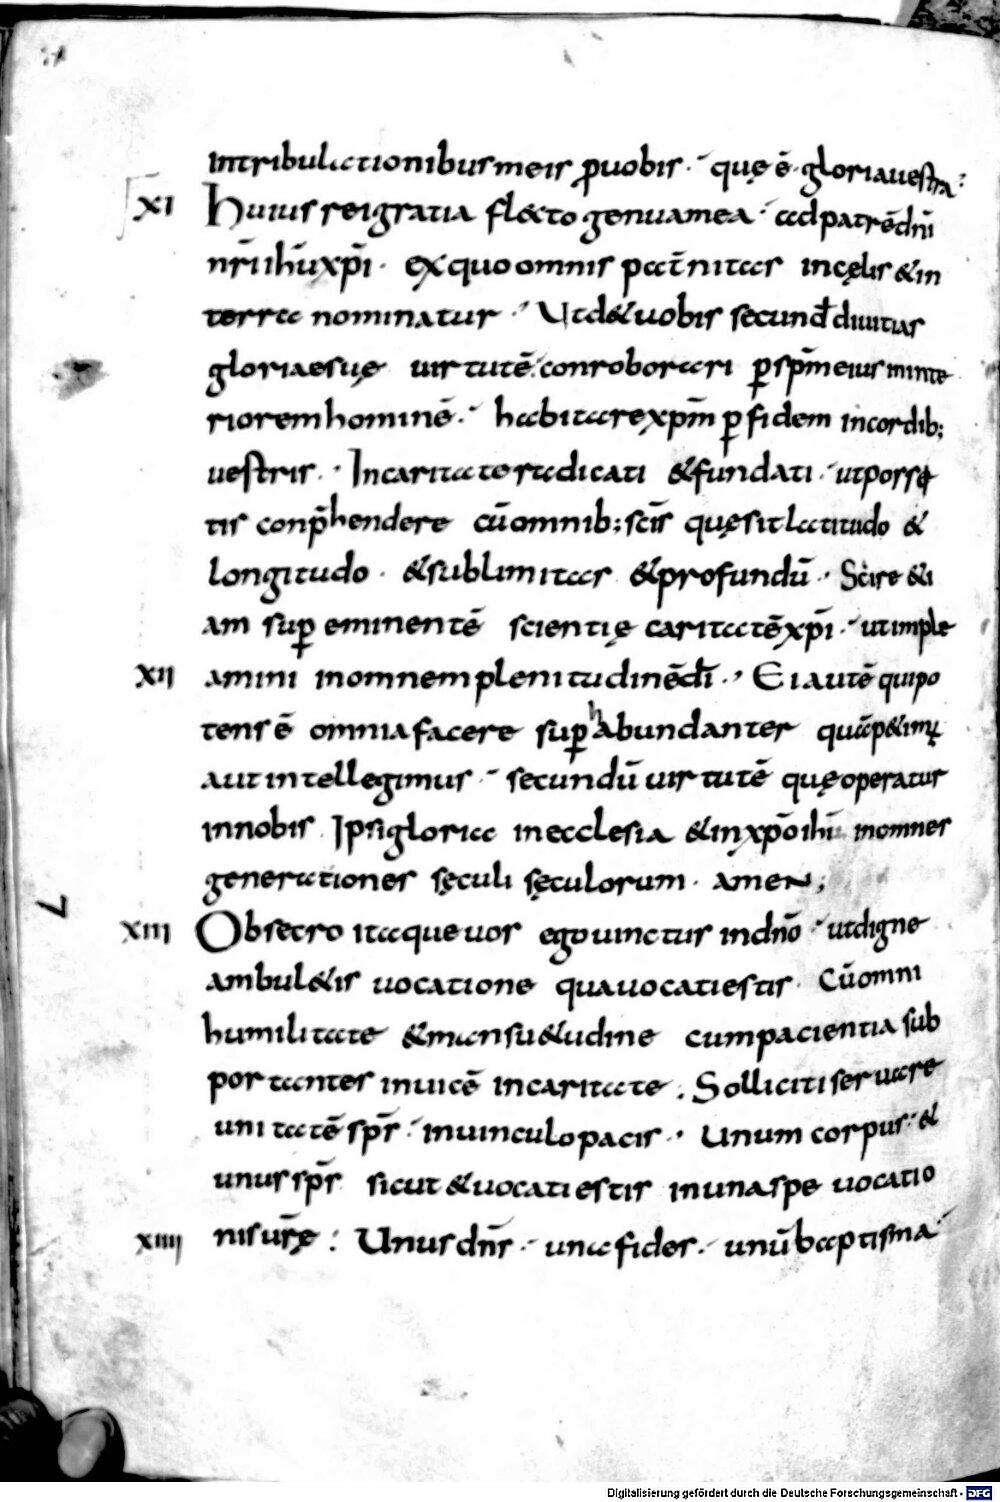 intribulationibus meis ꝓuobis · quę ē · gloria uestra ·
XI Huius rei gratia flecto genua mea · ad patrē dn̄i
nr̄i ih̄u xp̄i · ex quo omnis pat̄nitas in cęlis & in
terra nominatur · Ut d& uobis secund̄ diuitias
gloriae suę uirtutē conroborari ꝑ sp̄m eius in inte
riorem hominē · habitare xp̄m ꝑ fidem in cordib;
uestris · In caritate radicati & fundati · ut possi
tis conp̄hendere cū omnib; sc̄is quę sit latitudo &
longitudo · & sublimitas & profundū · Scire &i
am suꝑ eminentē scientię caritatē xp̄i · ut imple
XII amini in omnem plenitudinē dī · Ei autē qui po
tens ē omnia facere suꝑ habundanter quā p&imꝰ
aut intellegimus · secundū uirtutē quę operatur
in nobis Ipsi gloria in ecclesia & in xp̄o ih̄u in omnes
generationes sęculi sęculorum · amen;
XIII Obsecro itaque uos ego uinctus in dn̄o · ut digne
ambul&is uocatione qua uocati estis · Cū omni
humilitate & mansu&udine cum pacientia sub
portantes inuicē in caritate · Solliciti seruare
unitatē sp̄s · in uinculo pacis · Unum corpus · &
unus sp̄s sicut & uocati estis in una spe uocatio
XIIII nis ur̄ę : Unus dn̄s · una fides · unū baptisma
Digitalisierung gefördert durch die Deutsche Forschungsgemeinschaft - DFG